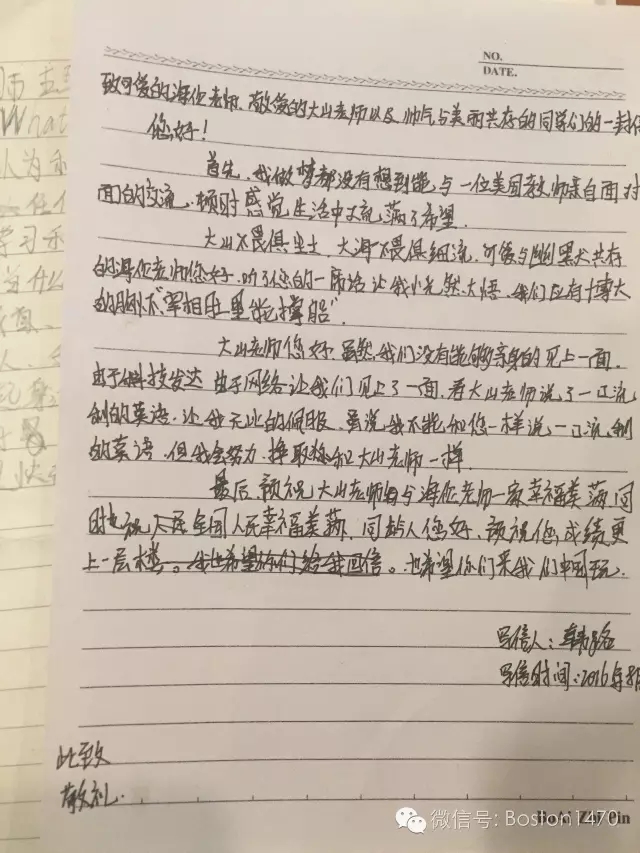 NO.
DATE.
致可爱的海伦老师、敬爱的大山老师以及帅气与美丽共存的同学们的一封信
您好!
首先,我做梦都没有想到能与一位美国教师亲自面对
面的交流,顿时感觉生活中充满了希望。
大山不畏惧尘土,大海不畏惧细流,可爱与幽默共存
的海伦老师您好,听了您的一席话让我恍然大悟,我们应有博大
的胸怀"宰相肚里能撑船"。
大山老师您好,虽然我们没有能够亲身的见上一面,
由于科技发达 由于网络让我们见上了一面,看大山老师说了一口流
利的英语,让我无比的佩服,虽说我不能和您一样说一口流利
的英语,但我会努力,争取和大山老师一样。
最后预祝大山老师与海伦老师一家幸福美满,同
时也祝全国人民幸福美满,同龄人您好,预祝您成绩更
上一层楼。我也希望你们给我回信。也希望你们来我们中国玩。
写信人:
写信时间:2016年8月
此致
敬礼.
微信号: Boston1470